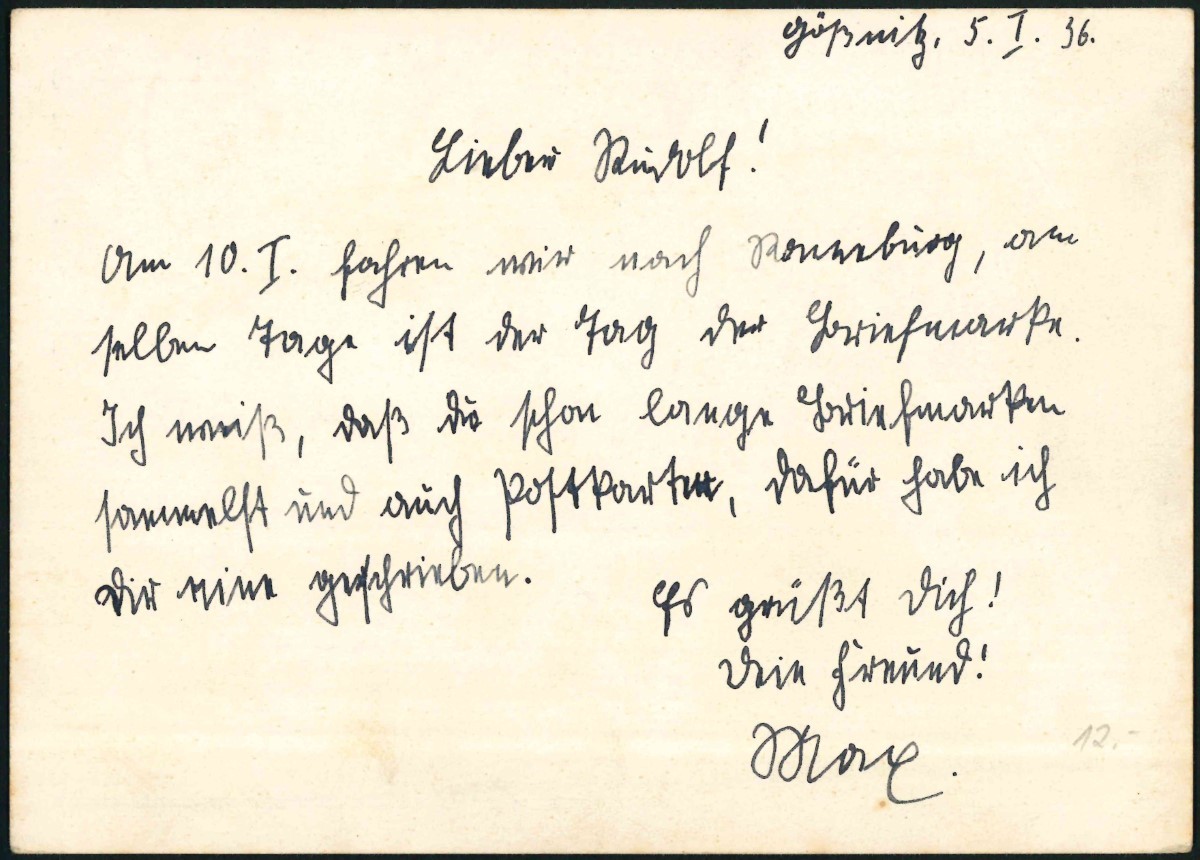 Gößnitz, 5. I. 36.
Lieber Rudolf!
Am 10. I. fahren wir nach Ronneburg, am
selben Tage ist der Tag der Briefmarke.
Ich weiß, daß du schon lange Briefmarken
sammelst und auch Postkarten, dafür habe ich
Dir eine geschrieben.
Es grüßt Dich!
Dein Freund!
Max.
12.-